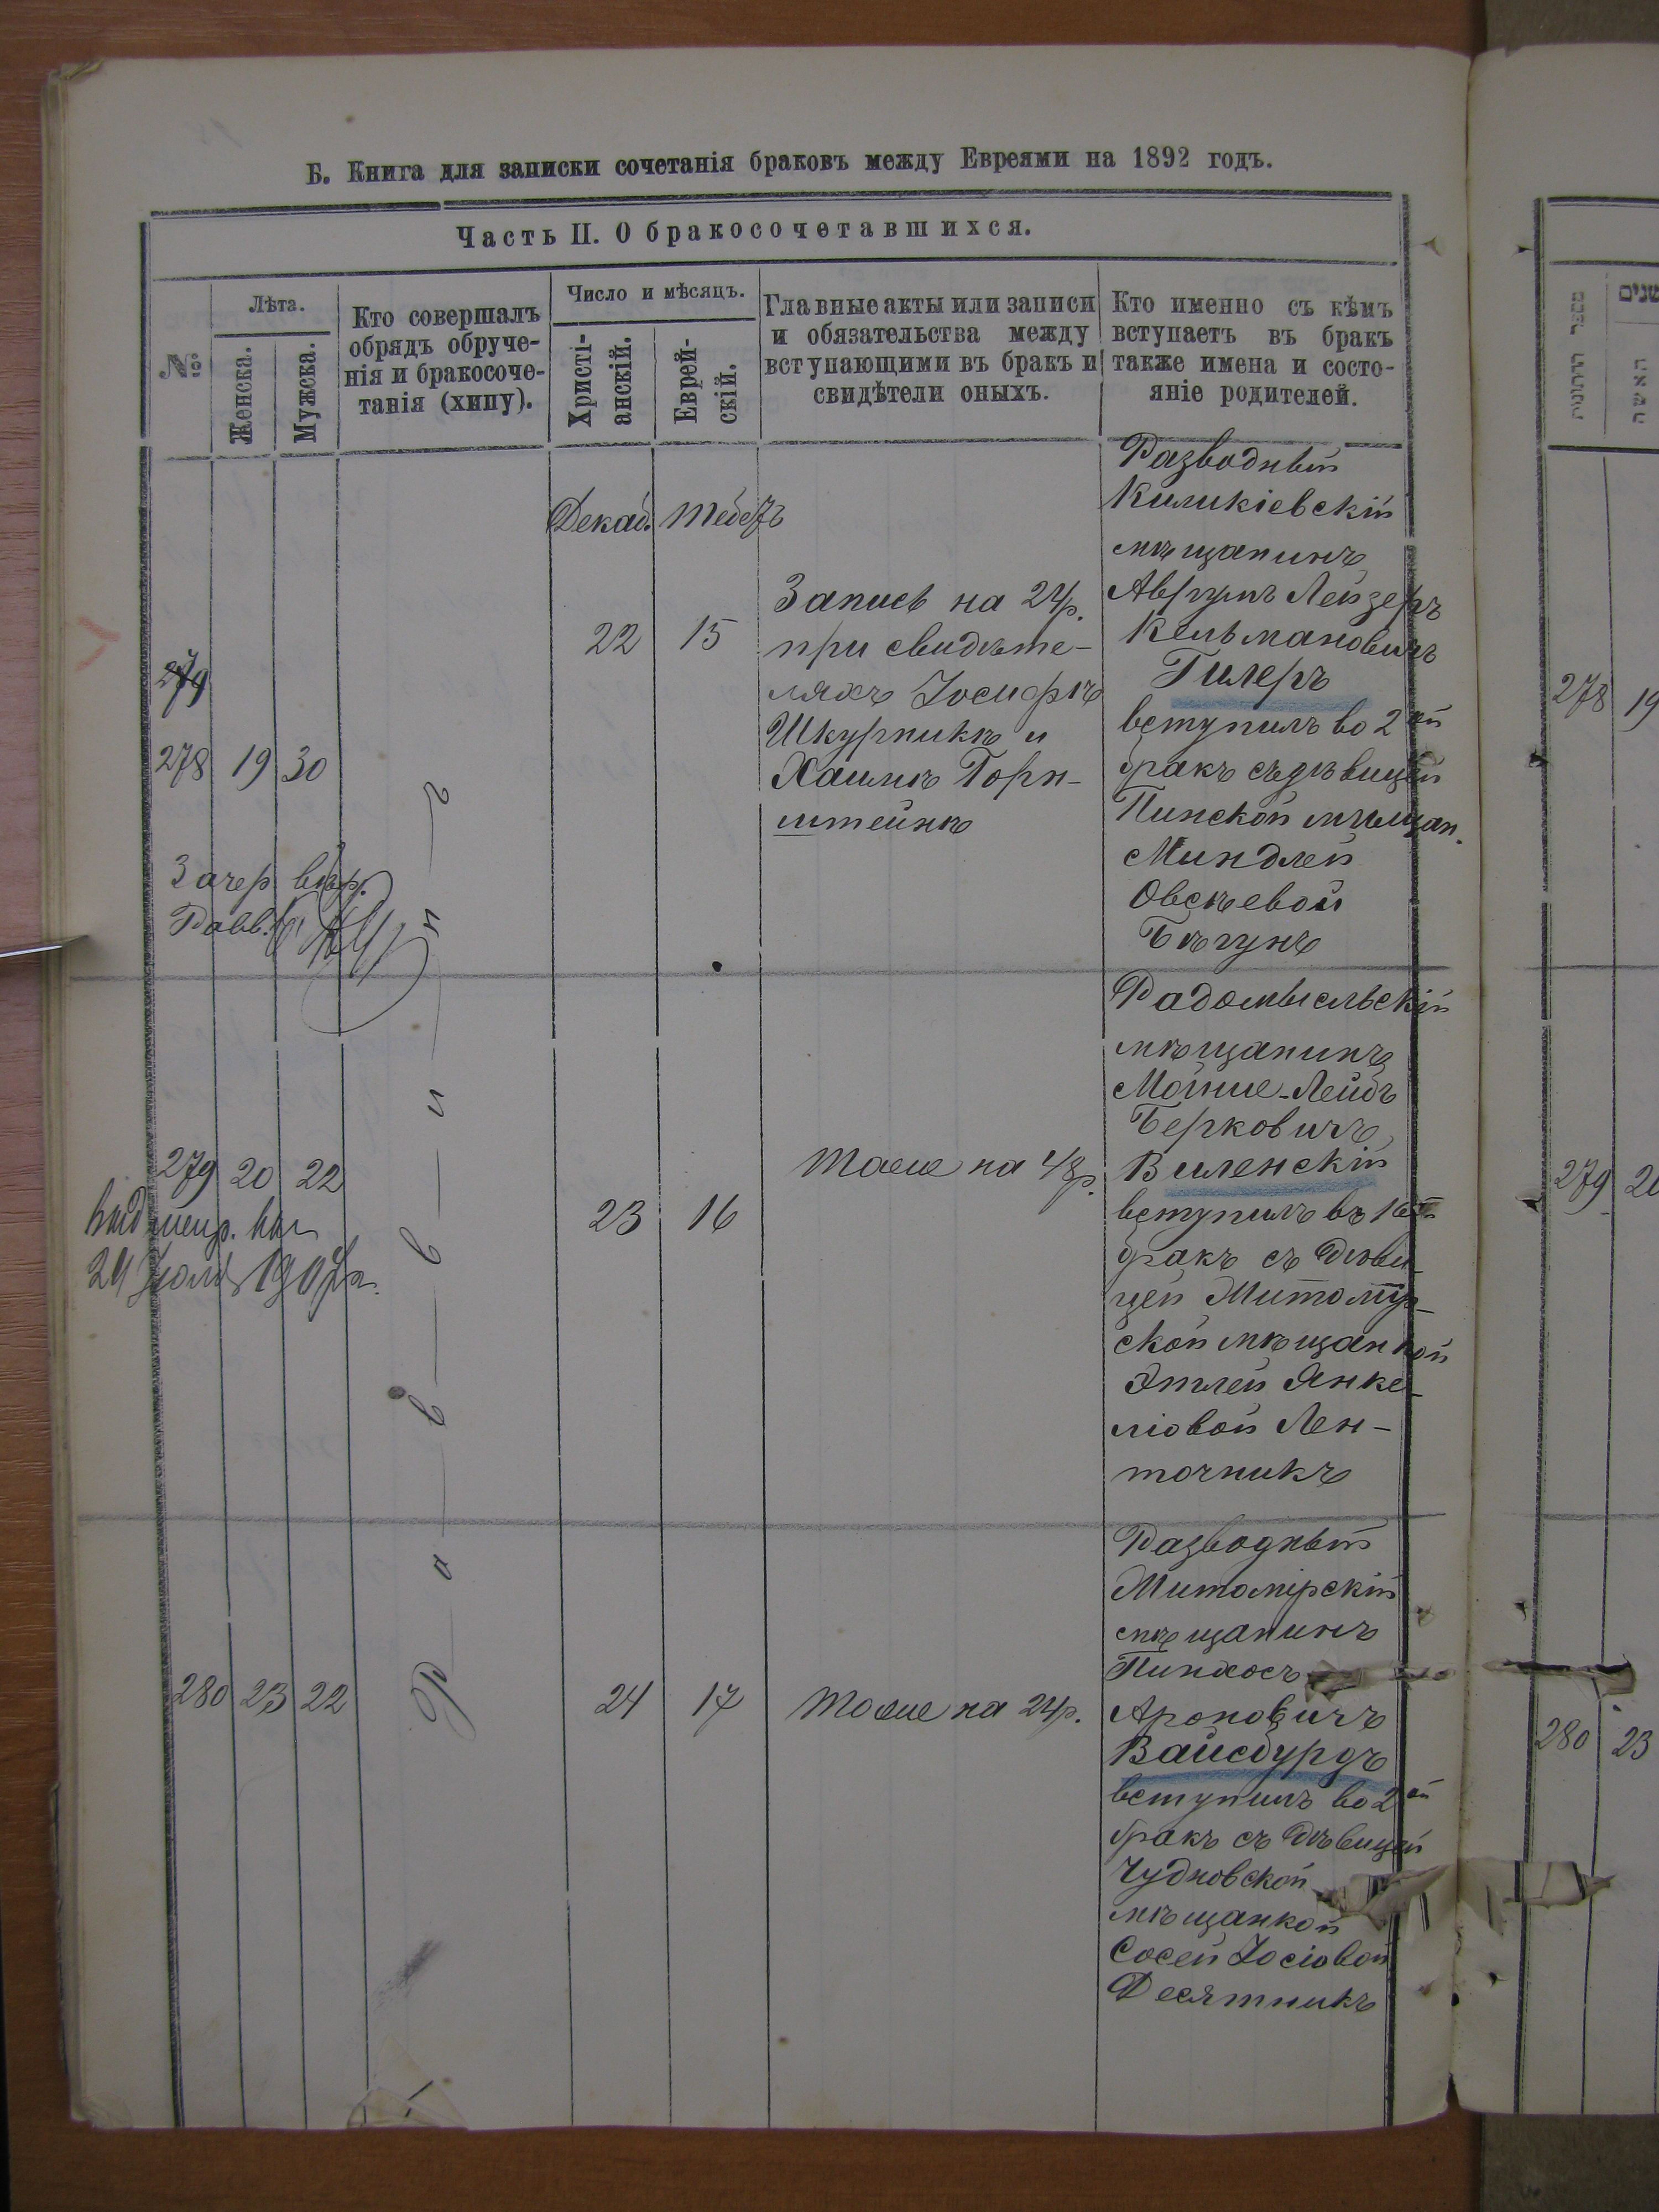 Б. Книга для записки сочетанія браковъ между Евреями на 1892 годъ.
Часть II. О бракосочетавшихся.
№
Лѣта.
Женска.
Мужска.
Кто совершалъ
обрядъ обруче-
нія и бракосоче-
танія (хипу).
Число и мѣсяцъ.
Христі-
анскій.
Еврей-
скій.
Главные акты или записи
и обязательства между
вступающими въ бракъ и
свидѣтели оныхъ.
Кто именно съ кѣмъ
вступаетъ въ бракъ
также имена и состо-
яніе родителей.
Декаб. Тебетъ
279
278 19 30
Зачер. вѣр.
Равв.
22 15
Запись на 24р.
при свидѣте-
ляхъ Іосифѣ
Шкурникѣ и
Хаимѣ Горн-
штейнѣ
Разводный
Киликіевскій
мѣщанинъ
Аврумъ Лейзеръ
Кельмановичъ
Гилеръ
вступилъ во 2ой
бракъ съ дѣвицей
Пинской мѣщан.
Миндлей
Овсѣевой
Бѣгунъ
279 20 22
24 Іюля
23 16
Тоже на 48р.
Радомысльскій
мѣщанинъ
Мойше-Лейбъ
Берковичъ
Виленскій
вступилъ въ 1ый
бракъ съ дѣви-
цей Житомір-
ской мѣщанкой
Этлей Янке-
ліовой Лен-
точникъ
280 23 22
Раввинъ
24 17
Тоже на 24р.
Разводный
Житомірскій
мѣщанинъ
Пинхосъ
Ароновичъ
Вайсбурдъ
вступилъ во 2ой
бракъ съ дѣвицей
Чудновской
мѣщанкой
Сосей Іосіовой
Десятникъ
שנים
מספר
האשה
278 19
279 20
280 23